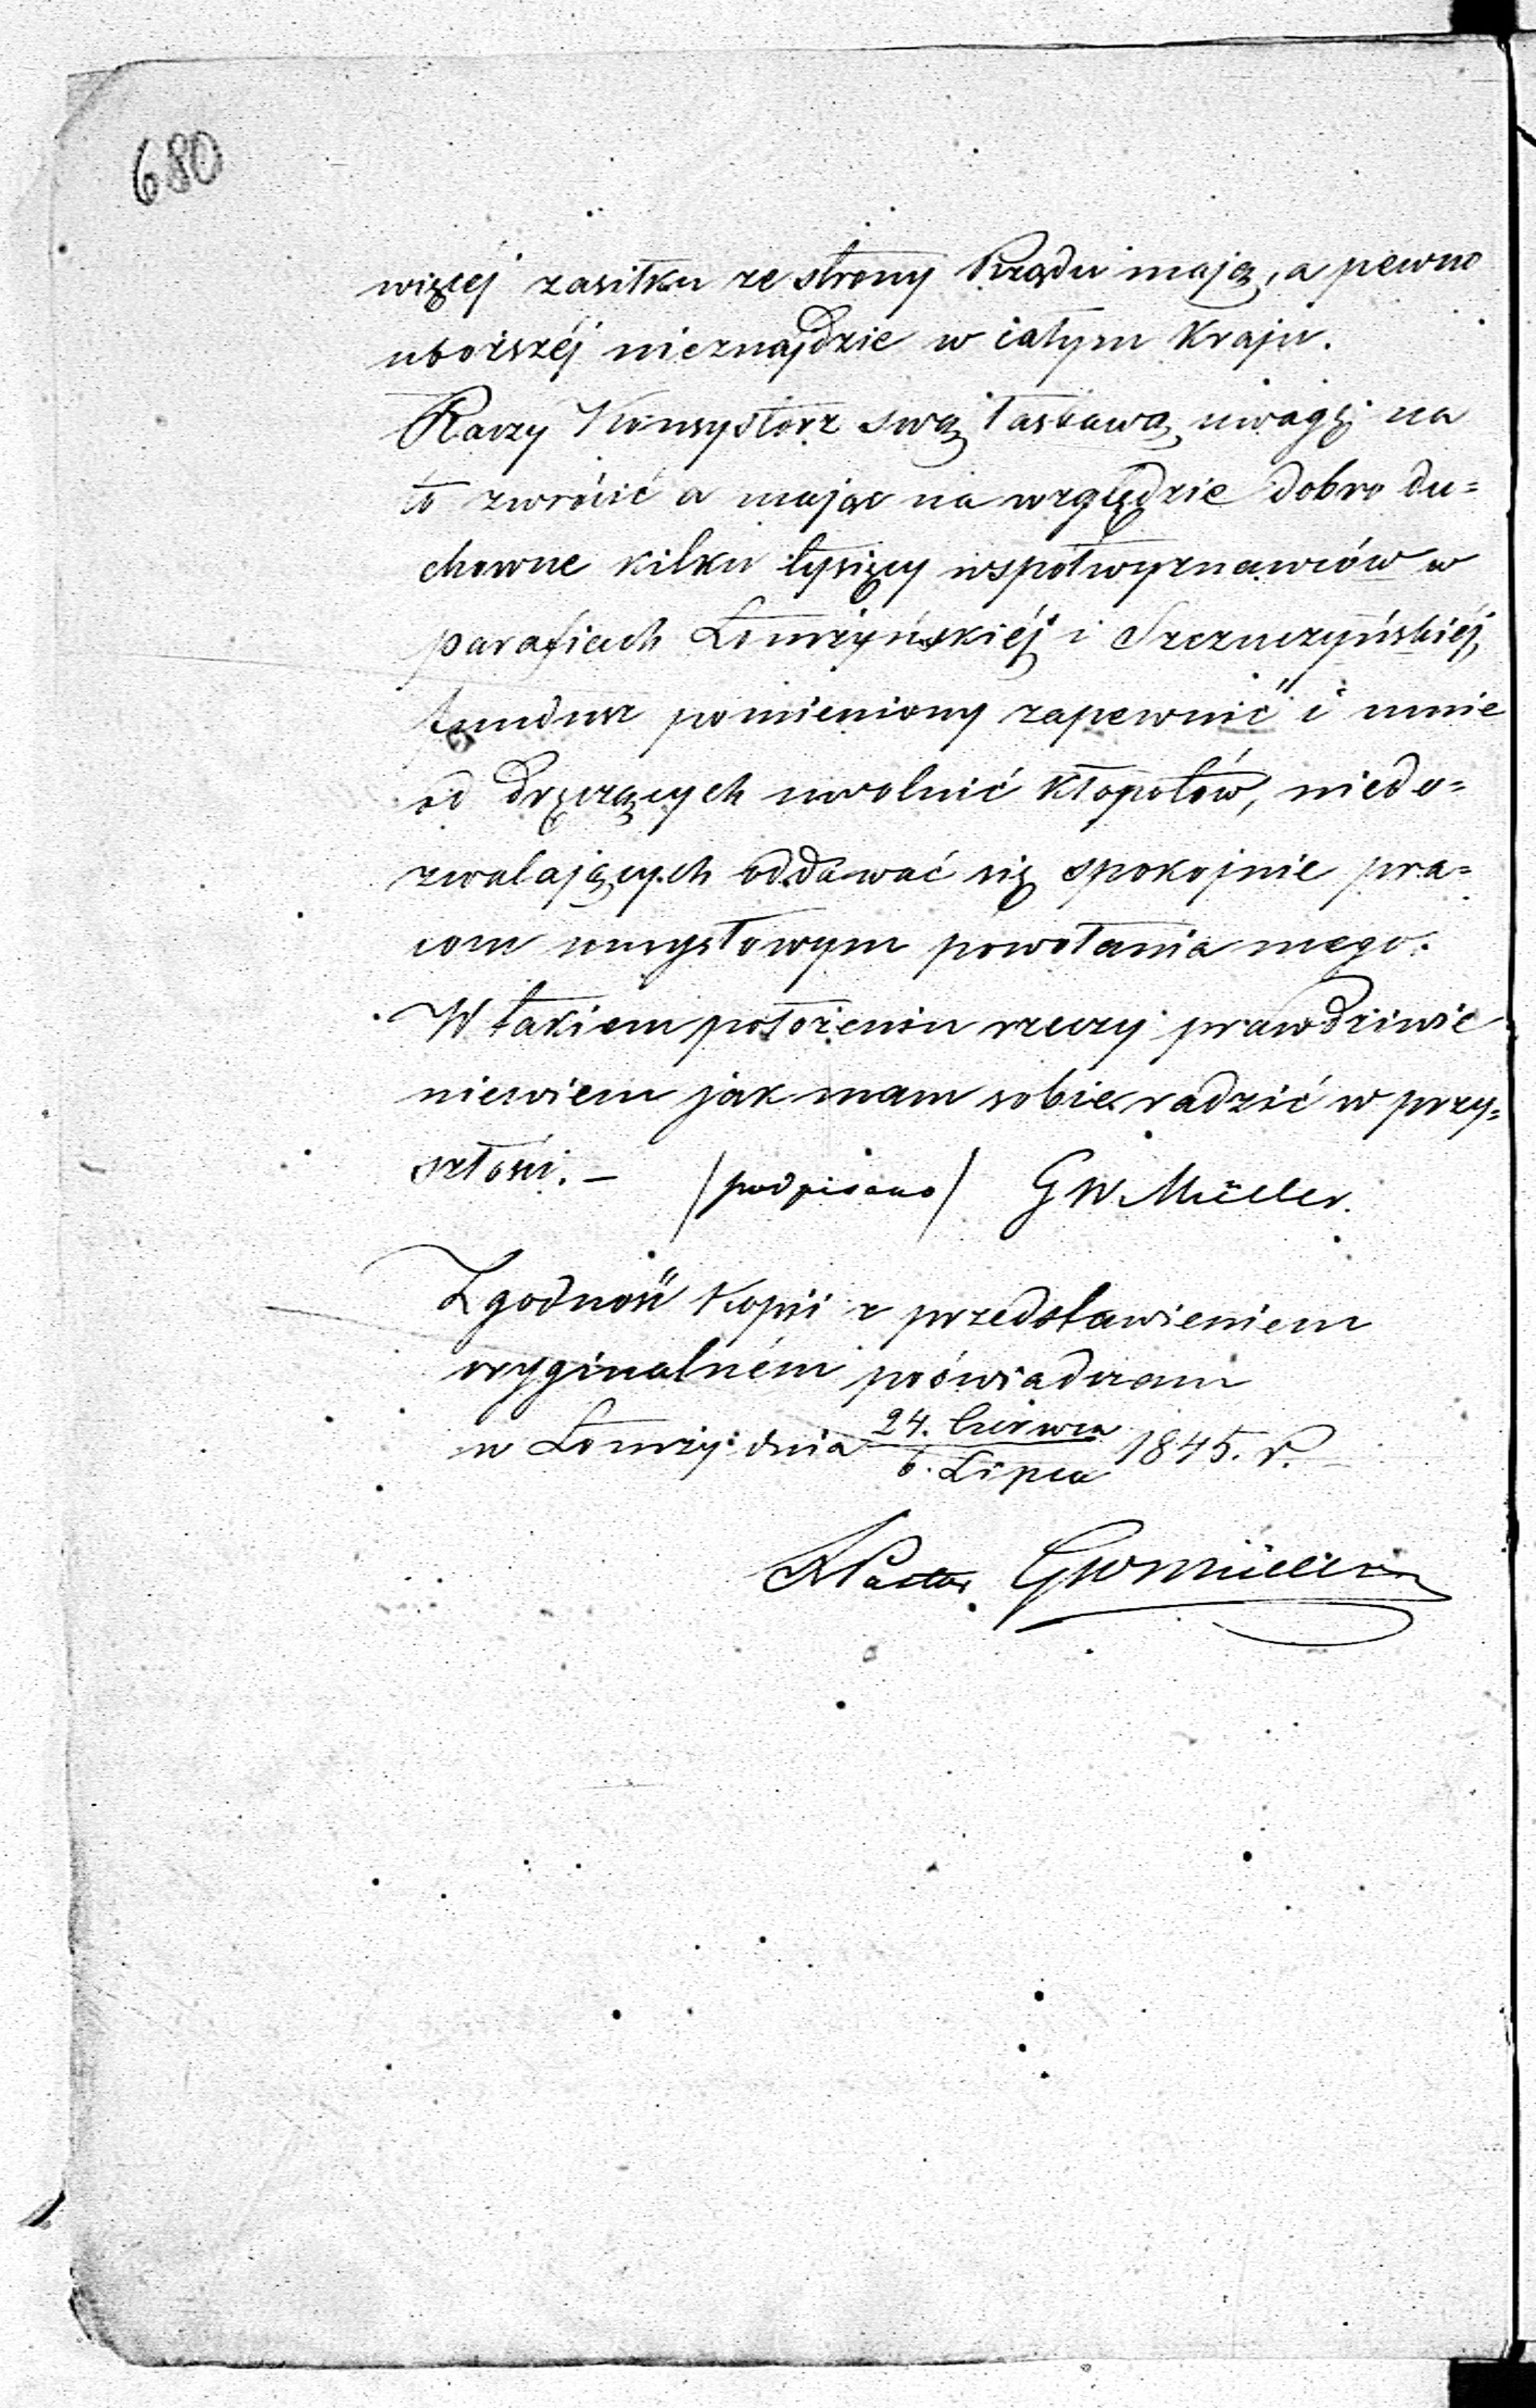 680
więcej zasiłku ze strony Rządu mają, a pewno
uboższéj nieznajdzie w całym Kraju.
Raczy Konsystorz swą łaskawą uwagę na
to zwrócić a mając na względzie dobro du=
chowne kilku tysięcy współwyznawców w
parafiach Łomżyńskiéj i Szczuczyńskiéj,
fundusz pomieniony zapewnić i mnie
od dręczących uwolnić kłopotów, niedo=
zwalających oddawać się spokojnie pra=
com umysłowym powołania mego.
W takiem położeniu rzeczy prawdziwie
niewiem jak mam sobie radzić w przy=
szłości. –
/podpisano/ GW. Müller.
Zgodność Kopii z przedstawieniem
oryginalném poświadczam
w Łomży dnia 24. Czerwca / 6. Lipca 1845. r.
Pastor GWMüller